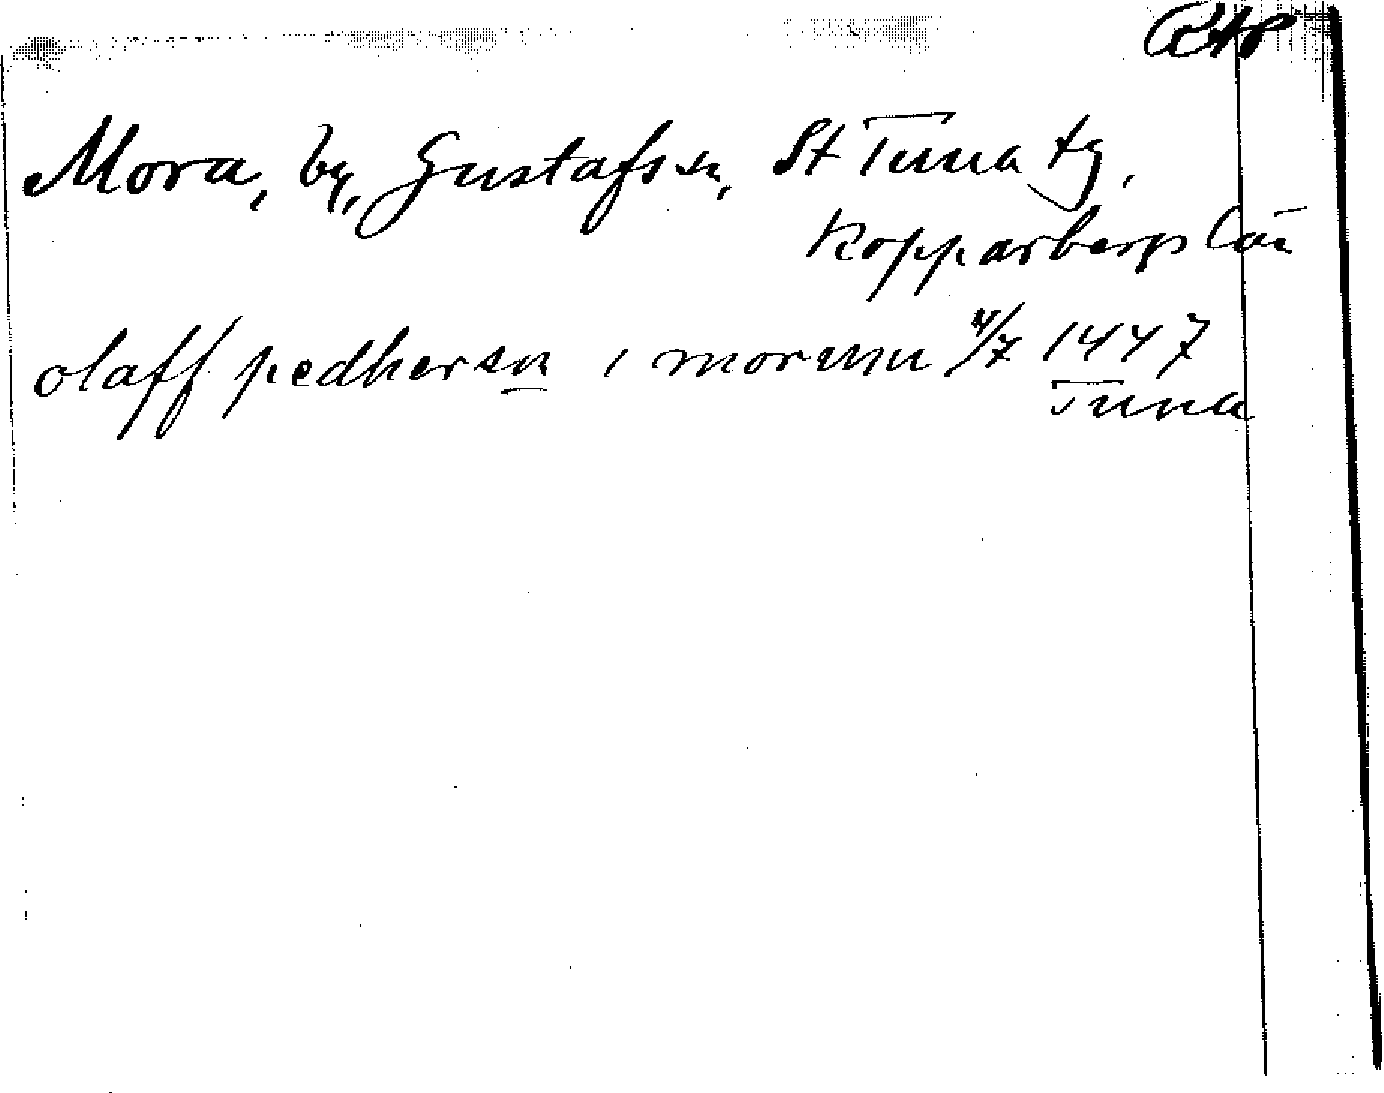 Mora, by, Gustafs sn, St Tuna tg,
Kopparbergs län
olaff pedhersn i morum 4/7 1447
Tuna